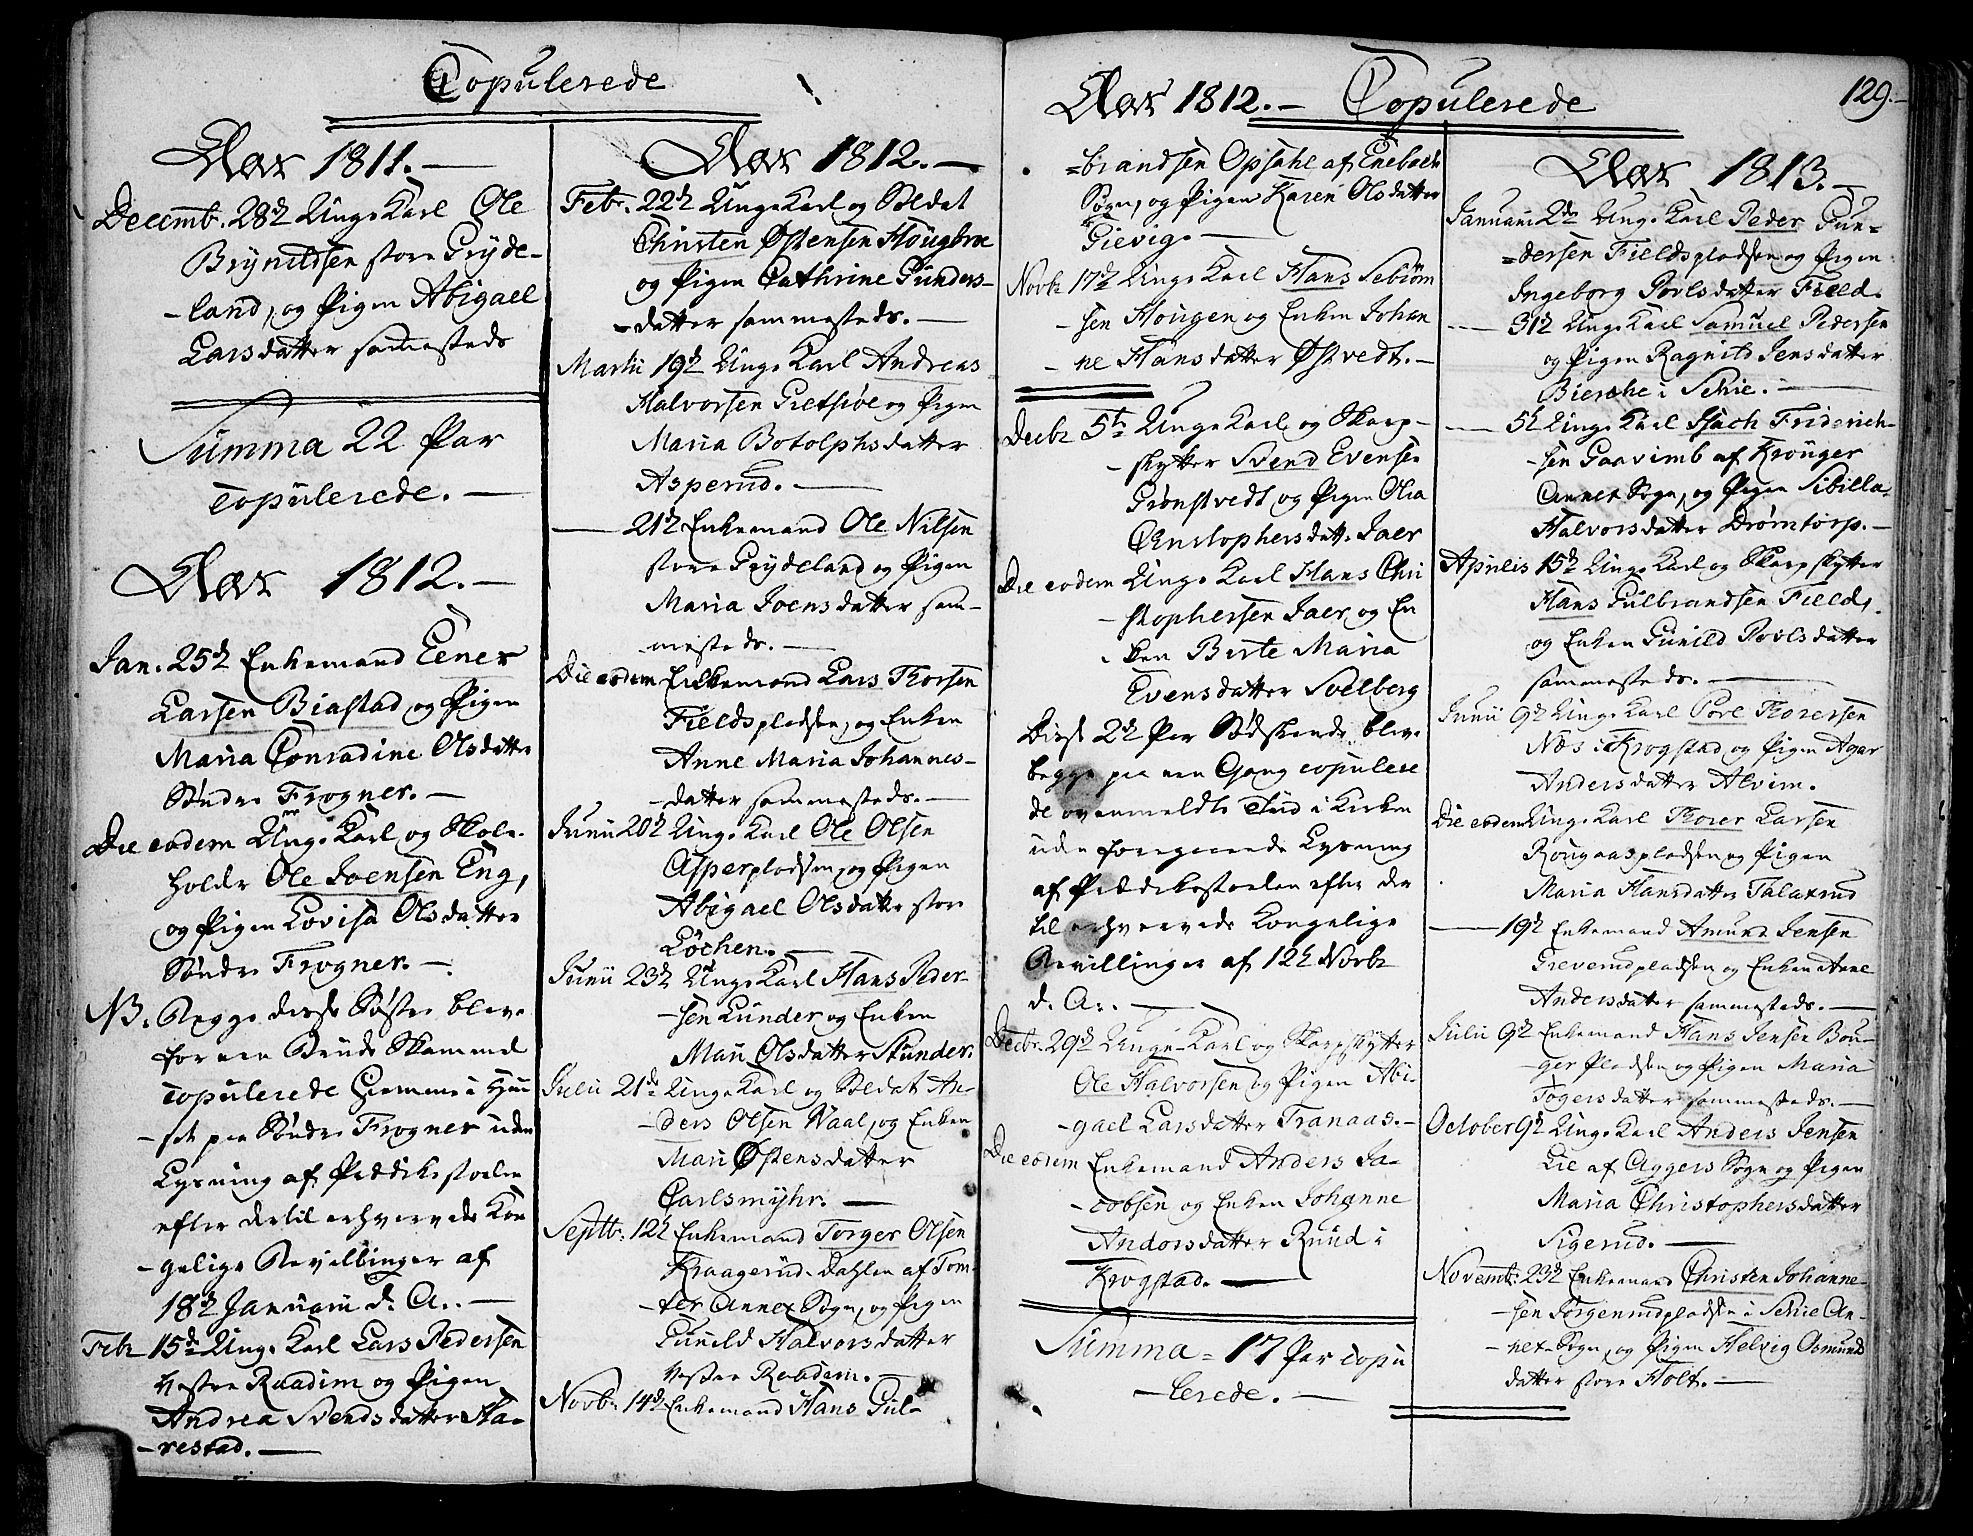 Copulerede
Aar 1811.—
Decemb. 28de Unge Karl Ole
Brynildsen store Gryde-
-land, og Pigen Abigael
Larsdatter sammesteds
Summa 22 Par
copulerede.—
Aar 1812.—
Jan. 25de Enkemand Eener
Larsen Biastad og Pigen
Maria Conradine Olsdatter
Søndre Frogner.—
Die eodem Unge Karl og Skole-
holder Ole Joensen Eng,
og Pigen Lovisa Olsdatter
Søndre Frogner.—
NB. Begge disse Søstre bleve
for een Brude Skammel
copulerede hiemme i Huu
-set paa Søndre Frogner uden
Lysning af Prædikestoelen
efter dertil erhvervede Kon
-gelige Bevillinger af
18de Januarii d. A..—
Febr 15de Unge Karl Lars Pedersen
Vestre Raadim og Pigen
Andrea Svendsdatter Sta-
-restad.—
Aar 1812.—
Febr. 22de Unge Karl og Soldat
Christen Østensen Hougbroe
og Pigen Cathrine Gunders-
-datter sammesteds.—
Martii 19de Unge Karl Andreas
Halvorsen Gietsiøe og Pigen
Maria Botolphsdatter
Asperud.—
— 21de Enkemand Ole Nilsen
store Grydeland og Pigen
Maria Joensdatter sam-
mesteds.—
Die eodem Enkemand Lars Thorsen
Fieldspladsen, og Enken
Anne Maria Johannes-
-datter sammesteds.—
Junii 20de Unge Karl Ole Olsen
Asperpladsen, og Pigen
Abigael Olsdatter store
Løchen.—
Junii 23de Unge Karl Hans Peder-
-sen Lunder og Enken
Mari Olsdatter Skunder.
Julii 21de Unge Karl og Soldat An-
-ders Olsen Waal, og Enken
Mari Østensdatter
Carlsmyhr.—
Septbr. 12te Enkemand Torger Olsen
Kraagerud-Dahlen af Tom-
-ter Annex Sogn, og Pigen
Gunild Halvorsdatter
Vestre Raadem.—
Novbr 14de Enkemand Hans Gul-
Aar 1812.— Copulerede
129.—
-brandsen Opsahl af Enebach
Sogn, og Pigen Karen Olsdatter
Gievig.—
Novbr 17de Unge Karl Hans Sebiørn
-sen Hougen og Enken Johan
-ne Hansdatter Østvedt.—
Decbr 5te Unge Karl og Skarp-
-skytter Svend Evensen
Grønstvedt og Pigen Olia
Christophersdatt. Jaer
Die eodem Unge Karl Hans Chri
-stophersen Jaer, og En
-ken Birte Maria
Evensdatter Solberg
Disse 2de Par Sødskende bleve
begge paa een Gang copulere
de ovenmeldte Tiid i Kirken
uden foregaaende Lysning
af Prædikestoelen efter der
til erhvervede Kongelige
Bevillinger af 12te Novbr
d. A..—
Decbr. 29de Unge Karl og Skarpskytter
Ole Halvorsen og Pigen Abi-
-gael Larsdatter Tranaas.—
Die eodem Enkemand Anders Ja-
-cobsen og Enken Johanne
Andorsdatter Ruud i
Krogstad.—
Summa = 17 Par copu
-lerede.—
Aar 1813.—
Januarii 2de Unge Karl Peder Gun-
-dersen Fieldspladsen og Pigen
Ingeborg Povlsdatter Field.
— 31te Unge Karl Samuel Pedersen
og Pigen Ragnild Jensdatter
Bierche i Schie.—
— 5te Unge Karl Isach Friderich-
-sen Gaavimb af Krouger
Annex Sogn, og Pigen Sibilla
Halvorsdatter Drømtorp.—
Aprilis 15de Unge Karl og Skarpskytter
Hans Gulbrandsen Fields
og Enken Gunild Povlsdatter
sammesteds.—
Junii 9de Unge Karl Povl Thoresen
Næs i Krogstad og Pigen Agar
Andersdatter Alvim.
Die eodem Unge Karl Thorer Larsen
Rougaaspladsen og Pigen
Maria Hansdatter Talaxrud
— 19de Enkemand Amund Jensen
Greverudpladsen og Enken Anne
Andersdatter sammesteds.—
Julii 9de Enkemand Hans Jensen Bou-
-ger Pladsen og Pigen Maria
Togersdatter sammesteds.—
October 9de Unge Karl Anders Jensen
Lie af Aggers Sogn og Pigen
Maria Christophersdatter
Sigerud.—
Novemb. 23de Enkemand Christen Johanne-
-sen Torgenrudpladsen i Schie An-
-nex-Sogn, og Pigen Helvig Osmunds
datter store Holt.—